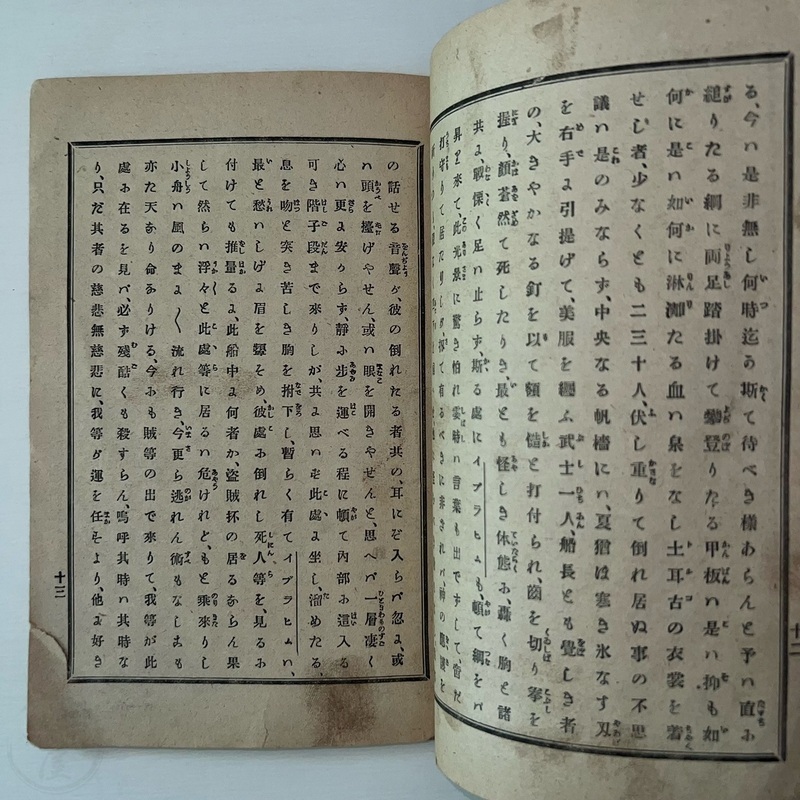 る、今ハ是非無し何時迄ゟ斯て待べき様あらんと予ハ直ふ
縋りたる綱に両足踏掛けて攀登りたる甲板ハ是ハ抑も如
何に是ハ如何に淋漓たる血ハ泉をなし土耳古の衣裳を着
せし者、少なくとも二三十人、伏し重りて倒れ居ぬ事の不思
議ハ是のみならず、中央なる帆檣にハ、夏猶ほ寒き氷なす刃
を右手よ引提げて、美服を纏ふ武士一人、船長とも覺しき者
の、大きやかなる釘を以て額を𥔎と打付られ、齒を切り拳を
握り、顔蒼然て死したりき最とも怪しき体態ふ、轟く胸と諸
共よ、戰慄く足ハ止らず、斯る處にイブラヒムも、頓て綱をバ
昇り來て、此光景に驚き怕れ霎時ハ言葉も出ですして
の話せる音聲ゟ、彼の倒れたる者共の、耳にぞ入らバ忽よ、或
ハ頭を擡げやせん、或ハ眼を開きやせんと、思へバ一層凄く
心ハ更よ安からず、靜ふ歩を運べる程に頓て內部ふ這入る
可き階子段まで來りしが、共よ思ハを此處よ坐し溜めたる、
息を吻と突き苦しき胸を拊下し、暫らく有てイブラヒムハ、
最と愁ハしげよ眉を顰をめ、彼處ふ倒れし死人等を、見るふ
付けても推量るよ、此船中よ何者か、盜賊抔の居るならん果
して然らハ浮々と此處等に居るハ危けれど、もと乘來りし
小舟ハ風のまよ〱流れ行き今更ら逃れん術もなしまも
亦た天なり命ありける、今ふも賊等の出で來りて、我等が此
處ふ在るを見バ、必ず殘酷くも殺すらん、嗚呼其時ハ其時な
り、只だ其者の慈悲無慈悲に、我等ゟ運を任そより、他よ好き
十三
十二